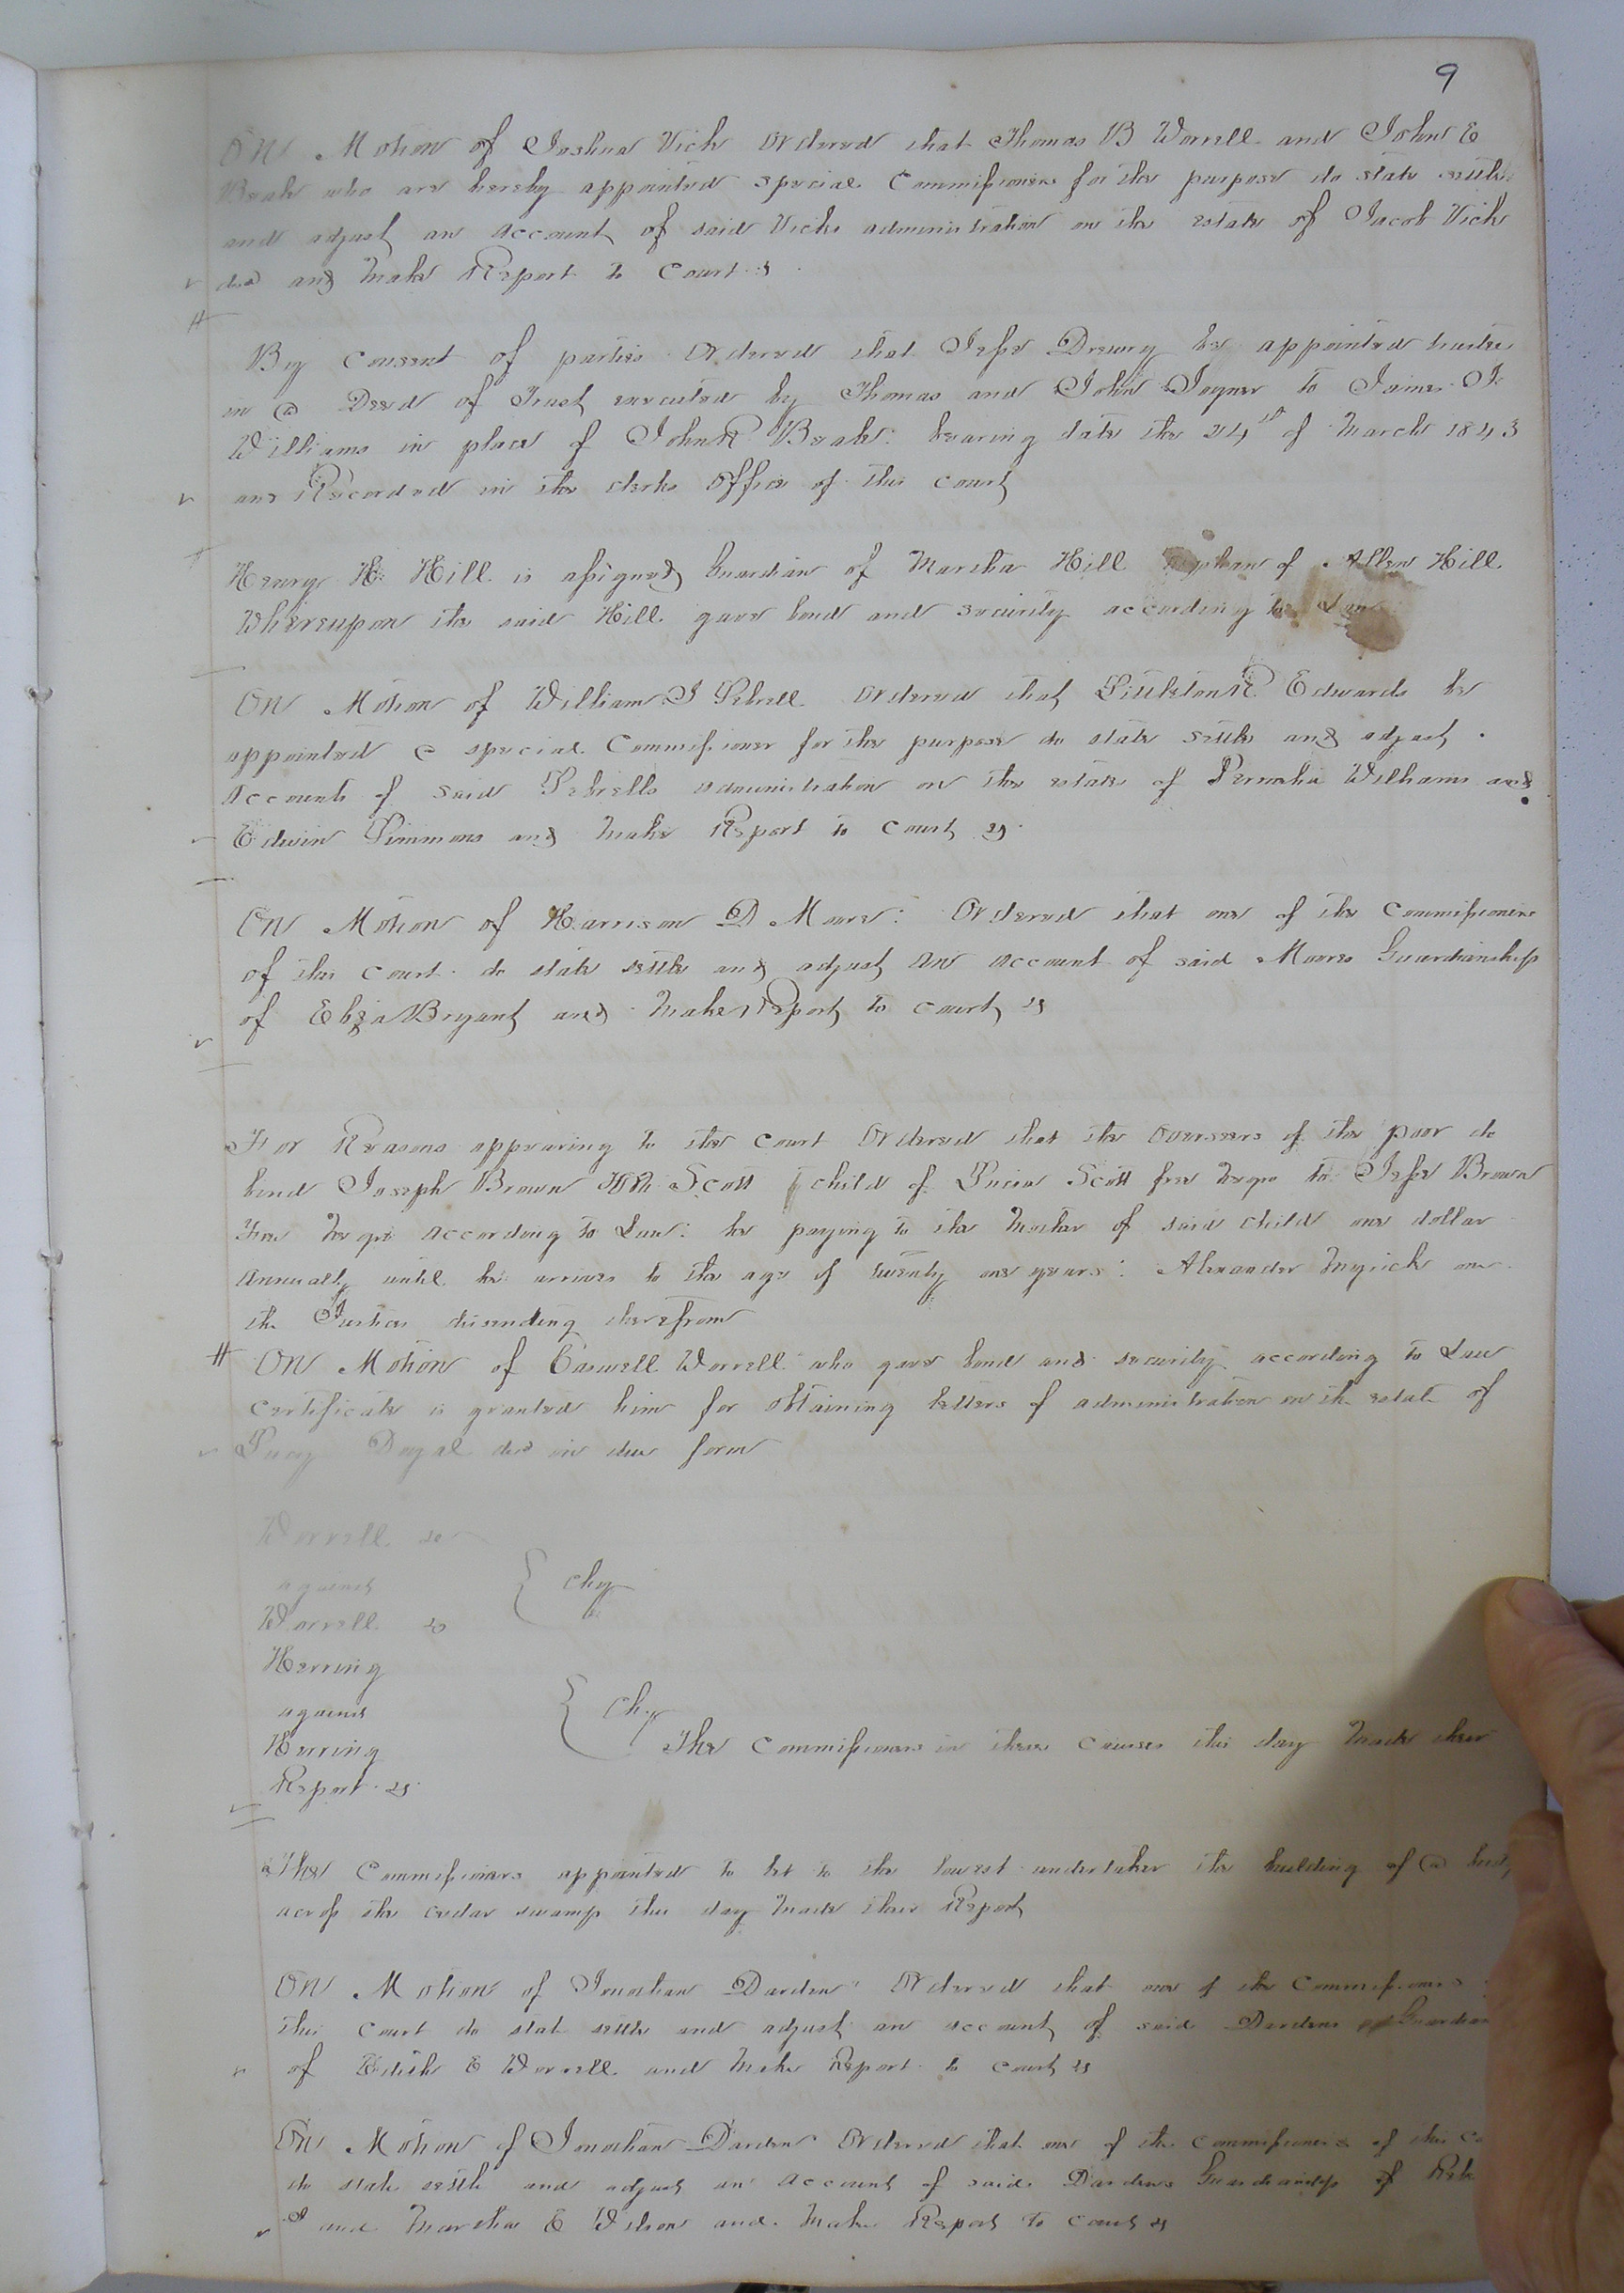 9
On Motion of Joshua Vick Ordered that Thomas B Worrell and John E
Beale who are hereby appointed special Commissioners for the purpose do state settle
and adjust an account of said Vicks administration on the estate of Jacob Vick
decd and Make Report to Court &
By consent of parties Ordered that Jesse Drewry be appointed trustee
in a Deed of Trust executed by Thomas and John Joyner to James
Williams in place of John R Beale: bearing date the 24th of March 1843
and Recorded in the clerks office of this court
Henry H Hill is assigned Guardian of Martha Hill orphan of Allen Hill
Whereupon the said Hill gave bond and security according to Law
On Motion of William J Sebrell Ordered that Littleton R Edwards be
appointed a special Commissioner for the purpose do state settle and adjust
Accounts of said Sebrells administration on the estate of Permelia Williams and
Edwin Simmons and Make Report to court &
On Motion of Harrison D Moore: Ordered that one of the Commissioners
of this court do state settle and adjust an account of said Moores Guardianship
of Eliza Bryant and Make Report to court &
For Reasons appearing to the court Ordered that the overseers of the poor do
bind Joseph Brown Scott child of Lucia Scott free Negro to Jesse Brown
Free Negro according to Law: he paying to the Mother of said child one dollar
Annually until he arrives to the age of twenty one years: Alexander Myrick one
the Justices disenting therefrom
On Motion of Caswell Worrell who gave bond and security according to Law
certificate is granted him for obtaining letters of administration on the estate of
Lucy Doyal decd in due form
Worrell &
against
Chy
Worrell &
Herring
against
Chy
Herring
The Commissioners in these causes this day Made their
Report &
The Commissioners appointed to let to the lowest undertaker the building of a
across the cedar swamp this day Made their Report
On Motion of Jonathan Darden Ordered that one of the Commissioners
this court do state settle and adjust an account of said Dardens Guardian
of Edith E Worrell and Make Report to court &
On Motion of Jonathan Darden Ordered that one of the commissioners of this
do state settle and adjust an account of said Dardens Guardianship of
and Martha E Wilson and Make Report to court &